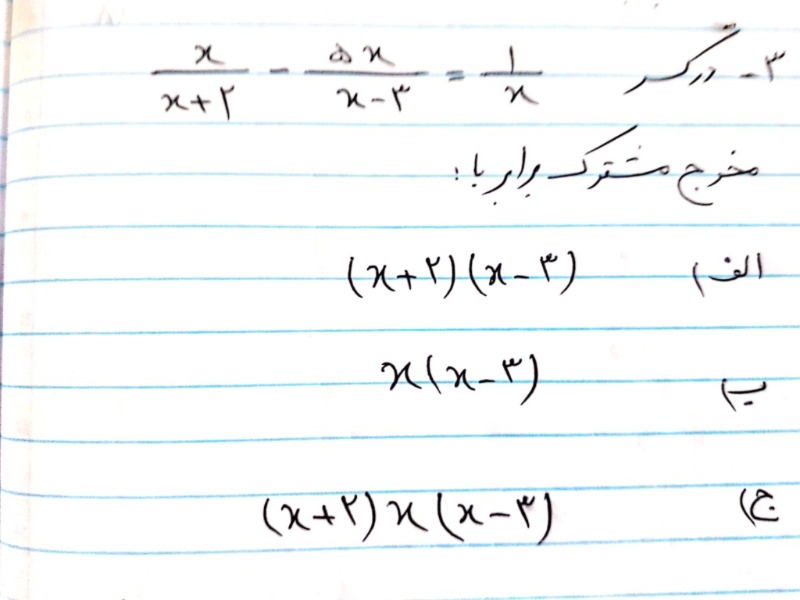 ۳- در کسر x/(x+۲) - ۵x/(x-۳) = ۱/x
مخرج مشترک برابر با:
الف) (x+۲)(x-۳)
ب) x(x-۳)
ج) (x+۲)x(x-۳)